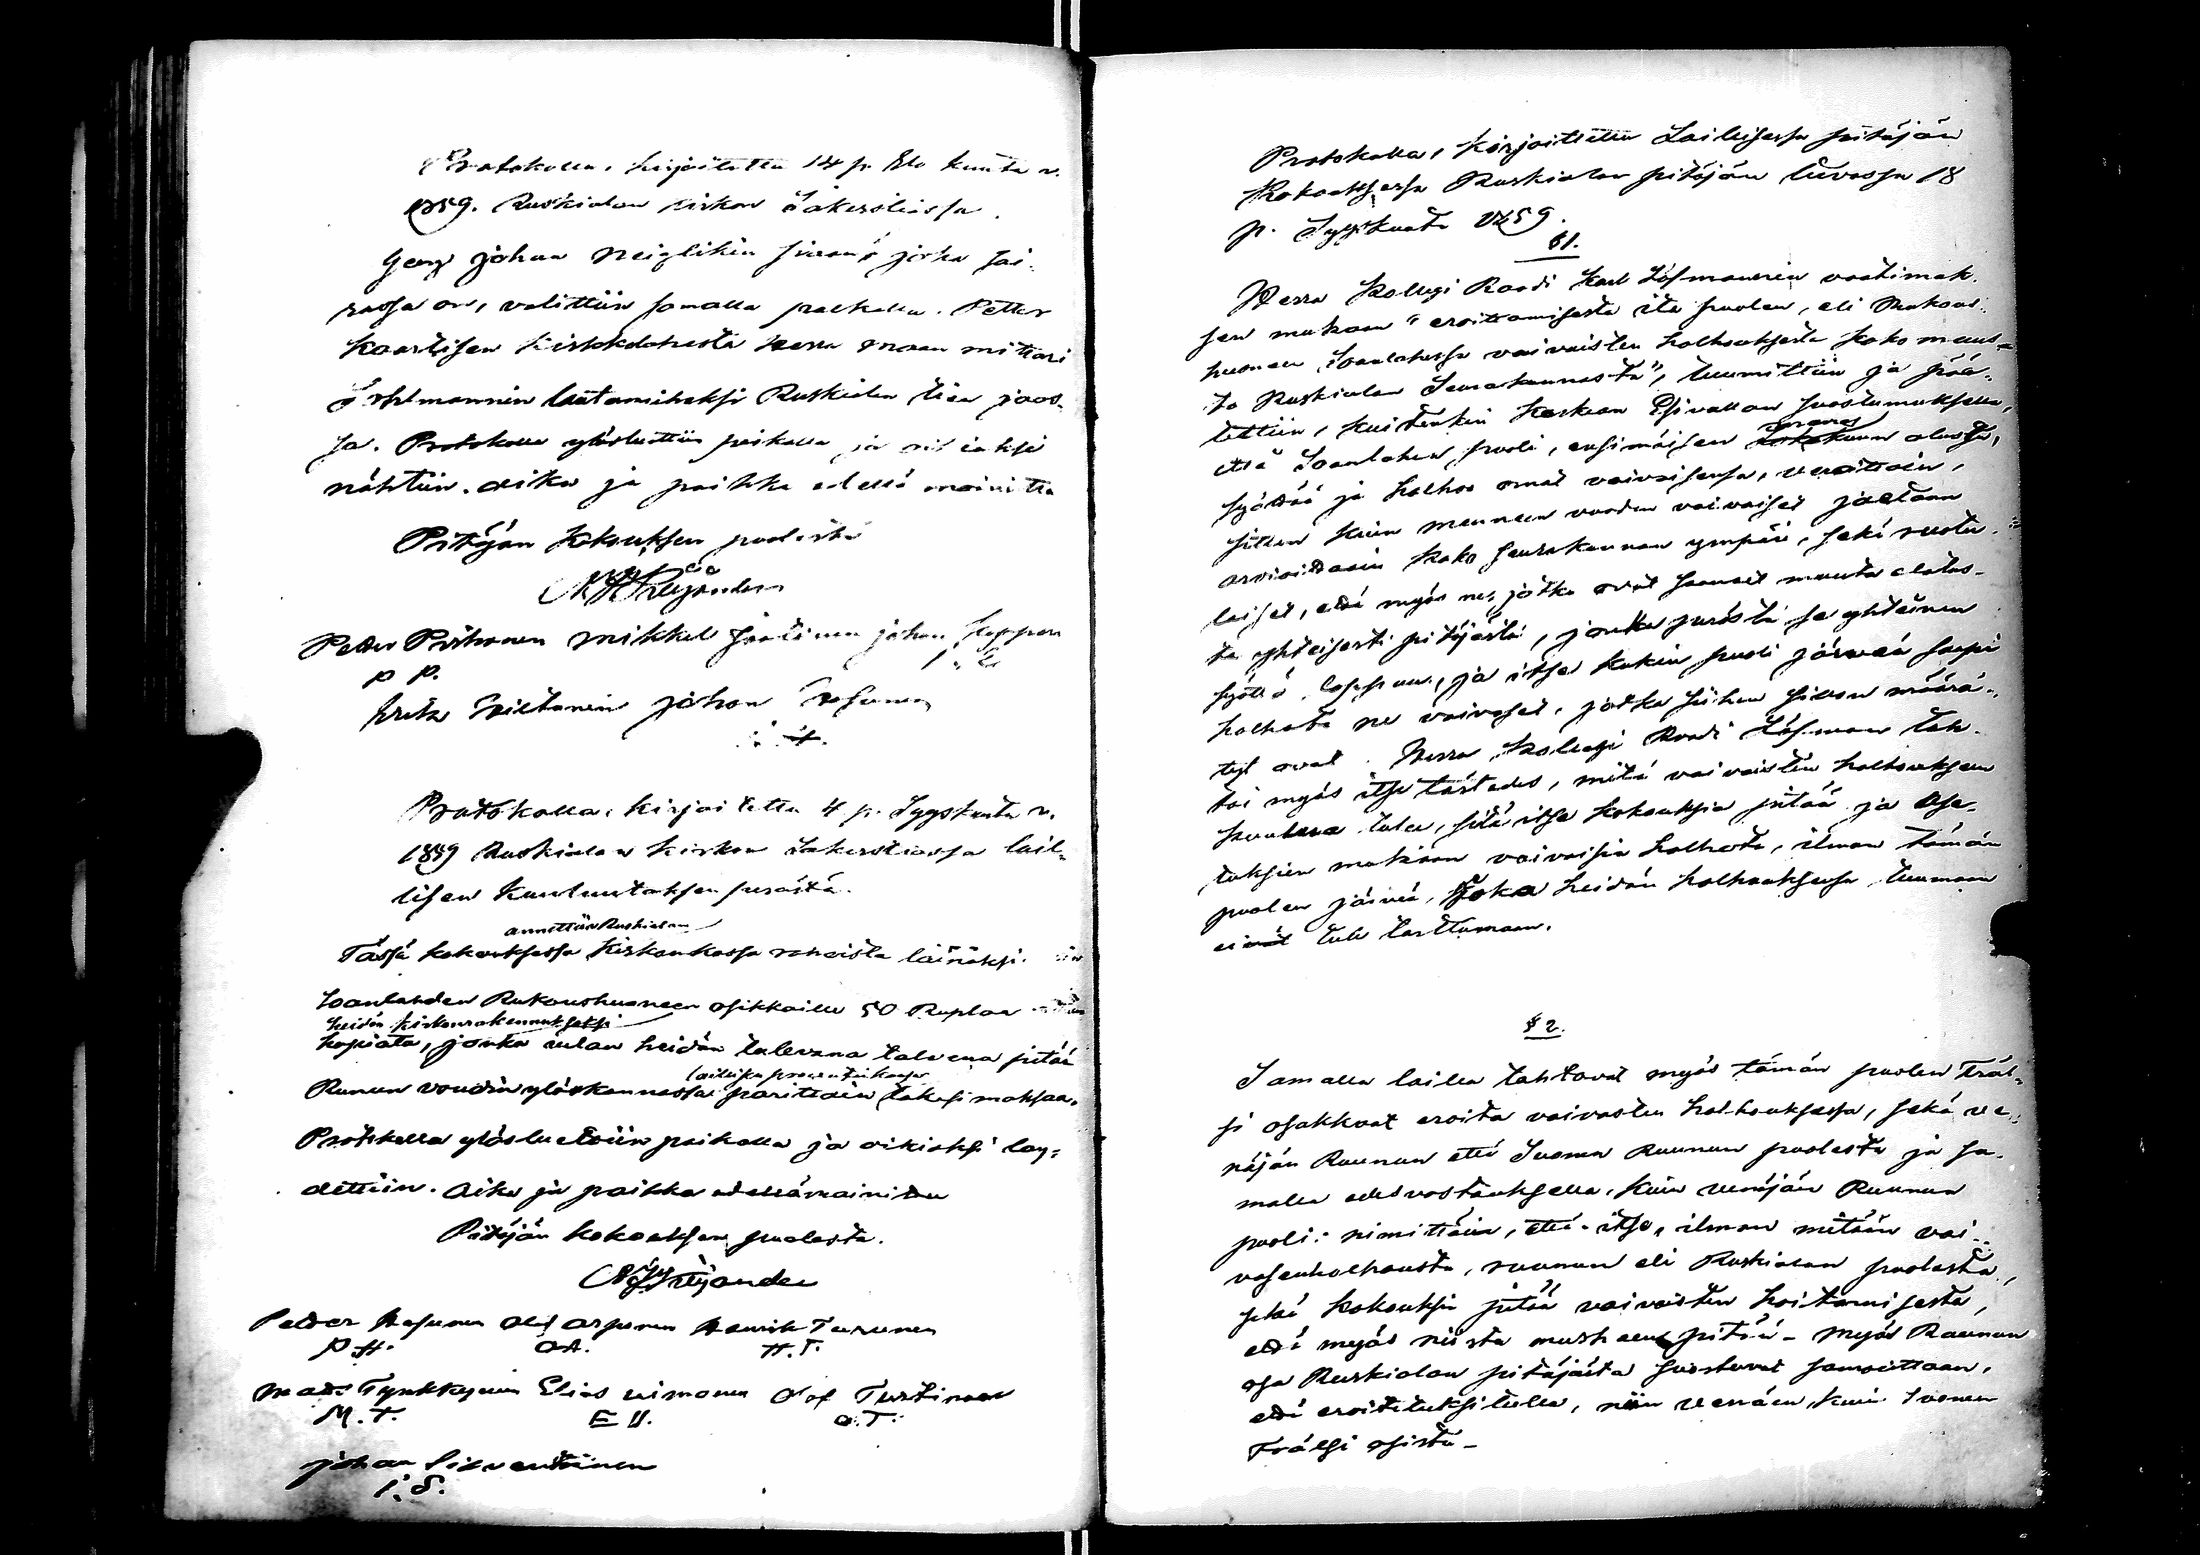 Protokolla, kirjoitettu 14 p. Elo kuuta v.
1859. Ruskialan kirkon Sakerstiassa.
Georg Johan Neiglikin siaan, joka sai-
rassa on, valittiin samalla palkalla. Petter
Kaartisen herra maan mittari
Ruskialan tien jaos-
sa. Protokolla ylösluettiin paikalla ja oikiaksi
nähtiin. Aika ja paikka edellä mainittu
Pitäjän kokouksen puolesta
Petter Pirhonen Mikkel Johan
P P.
Johan Hosunen
Protokolla, kirjoitettu 4 p. Syyskuuta v.
1859 Ruskialan kirkon Sakerstiassa lail-
lisen kuulutuksen perästä.
annettiin Ruskialan
Tässä kokouksessa kirkonkassa rahoista lainaksi
Soanlahden Rukoushuoneen osikkaille 50 Ruplaa
heidän kirkonrakennukseksi
hopiata, jonka velan heidän tulevana talvena pitää
laillisen procentin kanssa
Ruunun voudin ylöskannossa takasi maksaa.
Protokolla ylösluettiin paikalla ja oikiaksi löy-
dettiin. Aika ja paikka edellämainittu
Pitäjän kokouksen puolesta.
Petter Hosunen Olof Asponen Henrik Turunen
P H. OA. H.T.
Mats Tynkkynen Elias Uimonen Olof Turtinen
M. T. E U. O.T.
Johan Sirventoinen
I. S.
Protokolla, kirjoitettu Laillisessa pitäjän
Kokouksessa Ruskialan pitäjän tuvassa 18
p. Syyskuuta 1859.
§1.
Herra Kollegi Raadi Karl Löfmannin vaatimuk-
sen mukaan "eroittamisesta itä puolen, eli Rukous-
huoneen Soanlahessa vaivaisten holhouksesta koko muus-
ta Ruskialan Seurakunnasta", tuumittiin ja pää-
tettiin, kuitenkin Korkean Esivallan suostumuksella,
että Soanlahen puoli, ensimäisen kuun alusta,
syöttää ja holhoo omat vaivaisensa,
sitten kuin menneen vuoden vaivaiset jaetaan
arvioittain koko Seurakunnan ympäri, sekä ruotu-
laiset, että myös ne, jotka ovat saaneet muuta elatus-
ta yhteisesti pitäjästä, jonka perästä se yhteinen
syöttö loppuu, ja itse kukin puoli järveä saapi
holhota ne vaivaset, jotka siihen sivon määrä-
tyt ovat. Herra Kollegi Raadi Löfman tah-
toi myös itse tästedes, mitä vaivaisten holhouksen
kuuluva tulee, sitä itse kokouksia pitää ja Ase-
tuksien mukaan vaivaisia holhota, ilman tämän
puolen järveä, joka heidän holhouksensa tuumaan
ei tule tarttumaan.
§ 2.
Samalla lailla tahtovat myös tämän puolen Fräl-
si osakkaat eroita vaivasten holhouksessa, sekä ve-
näjän Ruunun että Suomen Ruunun puolesta ja sa-
malla edesvastauksella, kuin venäjän Ruunun
puoli: nimittäin, että itse, ilman mitään vai-
vasenholhousta, ruunun eli Ruskialan puolesta,
sekä kokouksia pitää vaivaisten hoitamisesta,
että myös niistä murheen pitää - Myös Ruunun
osa Ruskialan pitäjästä suostuvat samoittaan,
että eroitetuksi tulla, niin venäen, kuin Suomen
Frälsi osista -